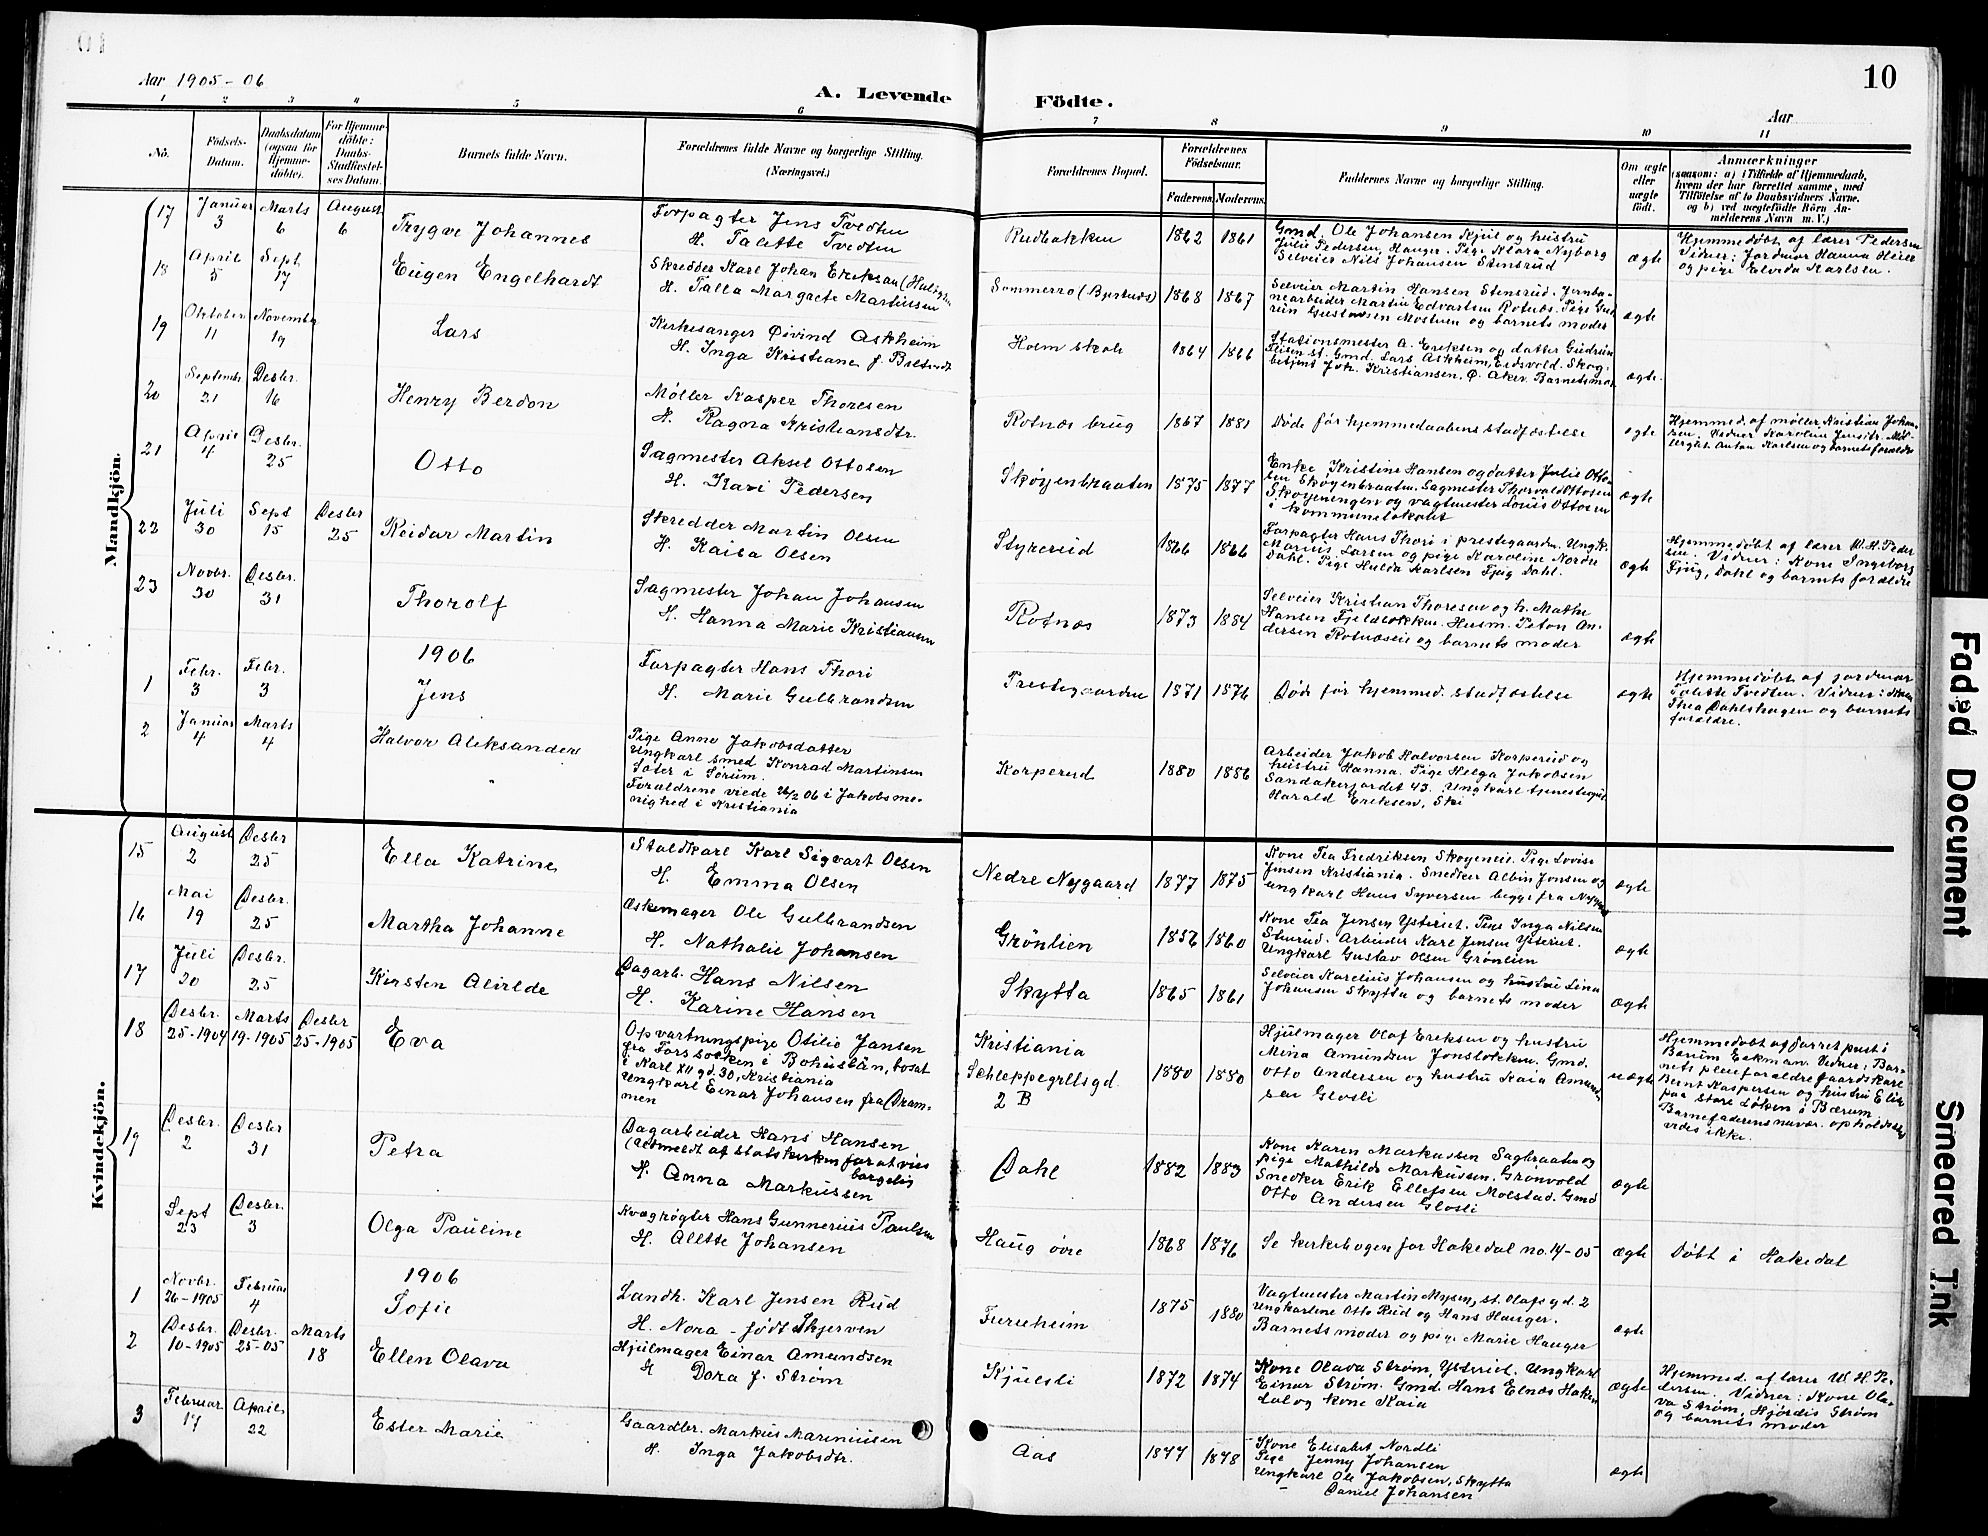 10
Aar 1905-06
A. Levende Födte.
Aar
10
1 2 3 4 5 6 7 8 9 10 11
No.
Födsels-Datum.
Daabsdatum (ogsaa for Hjemme-döbte).
For Hjemme-döbte: Daabs-Stadfæstel-ses Datum.
Barnets fulde Navn.
Forældrenes fulde Navne og borgerlige Stilling. (Næringsvei.)
Forældrenes Bopæl.
Forældrenes Födselsaar.
Faderens. Moderens.
Faddernes Navne og borgerlige Stilling.
Om ægte eller uægte födt.
Anmærkninger
(saasom: a) i Tilfælde af Hjemmedaab, hvem der har forrettet samme, med Tilföielse af to Daabsvidners Navne, og b) ved uægtefödte Börn An-melderens Navn m. V.)
Mandkjön.
17 Januar 3 Marts 6 August 6 Trygve Johannes
Forpagter Jens Tvedten
H. Talette Tvedten
Rudbakken 1862 1861
Gmd. Ole Johansen Kjul og hustru
Julie Pedersen, Hauger. Pige Klara Nyborg
Selveier Nils Johansen Stensrud
ægte
Hjemmedøbt af lærer Pedersen
Vidner: Jordmor Hanna Heier
og pige Elvida Karlsen.
18 April 5 Sept 17 Eugen Engelhardt
Skredder Karl Johan Eriksen
H. Talla Margrete Martinsen
Sommerro 1868 1867
Selveier Martin Hansen Stensrud. Jernba-
nearbeider Martin Edvartsen Rotnes. Pige Gud-
run Gustavsen Mostuen og barnets moder
ægte
19 Oktober 11 November 19 Lars
Kirkesanger Øivind Askheim
H. Inga Kristiane f. Bretvedt
Holm skole 1864 1866
Stationsmester A. Eriksen og datter Gudrun
Lars Askheim, Eidsvold. Skog-
betjent Joh. Kristiansen, Ø. Aker. Barnets mor
ægte
20 September 21 Desbr. 16 Henry Berdon
Møller Kasper Thoresen
H. Ragna Kristiansdtr.
Rotnæs brug 1867 1881
Døde før hjemmedaabens stadfæstelse
ægte
Hjemmed. af møller Kristian Johan-
sen. Vidner Karoline Jensdtr. Møl-
lergut Anton Karlsen og barnets forældre
21 April 4 Desbr. 25 Otto
Sagmester Aksel Ottosen
H. Kari Pedersen
Skøyenbraaten 1875 1877
Enke Kristine Hansen og datter Julie Otto-
sen Skøyenbraaten. Sagmester Thorvald Ottosen
Skøyenengen og vagtmester Louis Ottosen
i kommunelokalet
ægte
22 Juli 30 Sept 15 Desbr 25 Reidar Martin
Skredder Martin Olsen
H. Kaisa Olsen
Styrerud 1866 1866
Forpagter Hans Thori i prestegaarden. Ungk.
Marius Larsen og pige Karoline Nordre
Dahl. Pige Hulda Karlsen Fjug Dahl.
ægte
Hjemmedøbt af lærer W. H. Peder
sen. Vidner: Kone Ingeborg
Fjug, Dahl og barnets forældre
23 Novbr. 30 Desbr. 31 Thorolf
Sagmester Johan Johansen
H. Hanna Marie Kristiansen
Rotnæs 1873 1884
Selveier Kristian Thoresen og h. Mathe
Hansen Fjeldløkken. Husm. Peton An-
dersen Rotnæseie og barnets moder
ægte
1906
1 Febr. 3 Febr. 3 Jens
Forpagter Hans Thori
H. Marie Gulbrandsen
Prestegaarden 1871 1876
Døde før hjemmed. stadfæstelse
ægte
Hjemmedøbt af jordmor
Talette Tvedten. Vidner: Kone
Thea Dahlshagen og barnets
forældre.
2 Januar 4 Marts 4 Halvor Aleksander
Pige Anne Jakobsdatter
Ungkarl smed Konrad Martinsen
Sæter i Sørum.
Forældrene viede 26/2 06 i Jakobs me-
nighed i Kristiania
Korperud 1880 1886
Arbeider Jakob Halvorsen Korperud og
hustru Hanna. Pige Helga Jakobsen
Sandakerjordet 43. Ungkarl tjenestegut
Harald Eriksen, Ski
Kvindekjön.
15 August 2 Desbr 25 Ella Katrine
Staldkarl Karl Sigvart Olsen
H. Emma Olsen
Nedre Nygaard 1877 1875
Kone Tea Fredriksen Skøyeneie. Pige Lovise
Jensen Kristiania. Snedker Albin Jonsen og
ungkarl Hans Syversen begge fra Nygaard
ægte
16 Mai 19 Desbr. 25 Martha Johanne
Æskemager Ole Gulbrandsen
H. Nathalie Johansen
Grönlien 1856 1860
Kone Tea Jensen Ysteriet. Pige Inga Nilsen
Sturud. Arbeider Karl Jensen Ysteriet.
Ungkarl Gustav Olsen Grönlien
ægte
17 Juli 20 Desbr. 25 Kirsten Alvilde
Dagarb. Hans Nilsen
H. Karine Hansen
Skytta 1865 1861
Selveier Karelius Johansen og hustru Lina
Johansen Skytta og barnets moder
ægte
18 Desbr. 25-1904 Marts 19-1905 Desbr 25-1905 Eva
Opvartningspige Otilie Jansen
fra Forssocken i Bohuslän, bosat
i Karl XII gd. 30, Kristiania
Ungkarl Einar Johansen fra Dram-
men
Kristiania
Schleppegrellsgd.
2 B
1880 1880
Hjulmager Olaf Eriksen og hustru
Mina Amundsen Jonsløkken. Gmd.
Otto Andersen og hustru Kaia Amund
sen Glosli
uægte
Hjemmedøbt af forret. prest i
Bærum Eckman. Vidner: Bar-
nets pleieforældre gaardskarl
Bernt Kaspersen og hustru Elise
paa store Løken i Bærum.
Barnefaderens nuvær. opholdssted
vides ikke.
19 Desbr. 2 Desbr 31 Petra
Dagarbeider Hans Hansen
(Utmeldt af statskirken for at vies
borgelig
H. Anna Markussen
Dahl 1882 1883
Kone Karen Markussen Sagbraaten og
pige Mathilde Markussen, Grønvold
Snedker Erik Ellefsen Molstad. Gmd
Otto Andersen Glosli
ægte
Sept 23 Desbr. 3 Olga Pauline
Kvægrøgter Hans Gunnerius Paulsen
H. Alette Johansen
Haug øvre 1868 1876
Se kirkebogen for Hakedal no. 14-05
ægte
Døbt i Hakedal
1906
1 Novbr. 26-1905 Februar 4 Sofie
Landh. Karl Jensen Rud
H. Nora - født Skjerven
Furuheim 1875 1880
Vagtmester Martin Mysen, st. Olafs gd. 2
Ungkarlene Otto Rud og Hans Hauger.
Barnets moder og pige Marie Hauger
ægte
2 Desbr. 10-1905 Desbr. 25-05 Marts 18 Ellen Olava
Hjulmager Einar Amundsen
H Dora f. Strøm
Kjulsli 1872 1874
Kone Olava Strøm, Ysteriet. Ungkarl
Einar Strøm. Gmd. Hans Elnæs Hake
dal og kone Kaia
ægte
Hjemmed. af lærer W. H. Pe-
dersen. Vidner: Kone Ola-
va Strøm, Hjördis Strøm
og barnets moder
3 Februar 17 April 22 Ester Marie
Gaardbr. Markus Mariniusen
H. Inga Jakobsdtr.
Aas 1877 1878
Kone Elisabet Nordli
Pige Jenny Johansen
Ungkarl Ole Jakobsen, Skytta
- Daniel Johansen
ægte
Faded Document
Smeared Ink